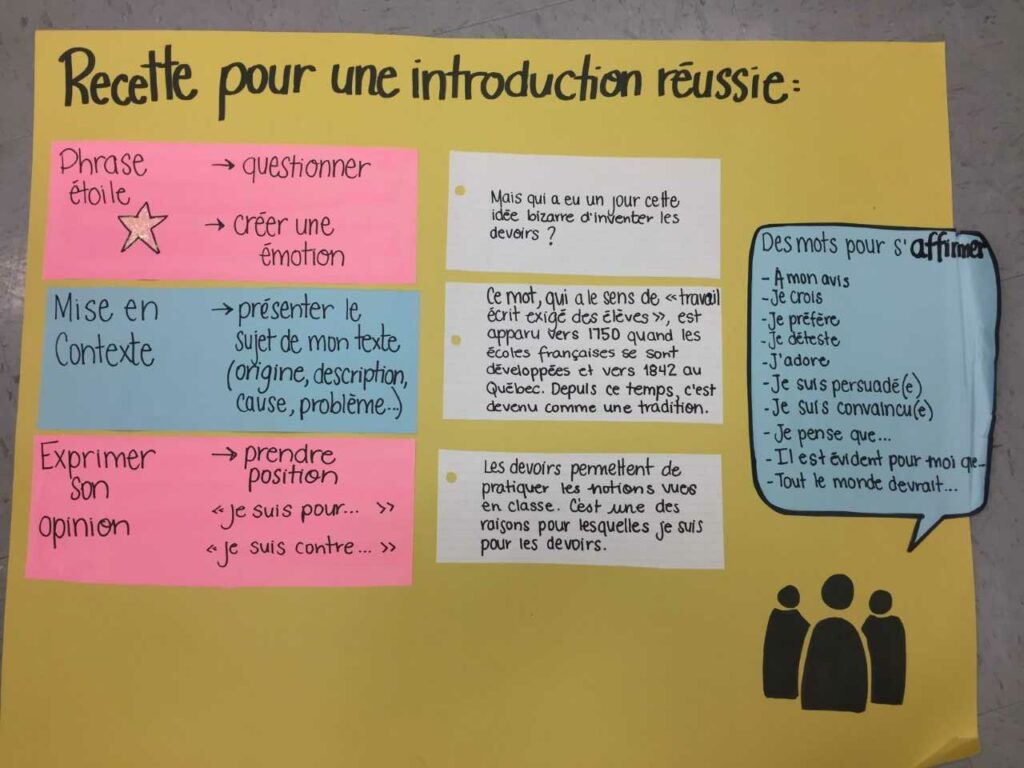 Recette pour une introduction réussie:
Phrase → questionner
étoile
→ créer une
émotion
Mais qui a eu un jour cette
idée bizarre d'inventer les
devoirs ?
Mise en → présenter le
Contexte sujet de mon texte
(origine, description,
cause, problème...)
Ce mot, qui a le sens de «travail
écrit exigé des élèves», est
apparu vers 1750 quand les
écoles françaises se sont
développées et vers 1842 au
Québec. Depuis ce temps, c'est
devenu comme une tradition.
Exprimer → prendre
son position
opinion «je suis pour... »
«je suis contre... »
Les devoirs permettent de
pratiquer les notions vues
en classe. C'est une des
raisons pour lesquelles je suis
pour les devoirs.
Des mots pour s'affirmer
- À mon avis
- Je crois
- Je préfère
- Je déteste
- J'adore
- Je suis persuadé(e)
- Je suis convaincu(e)
- Je pense que...
- Il est évident pour moi que...
- Tout le monde devrait...